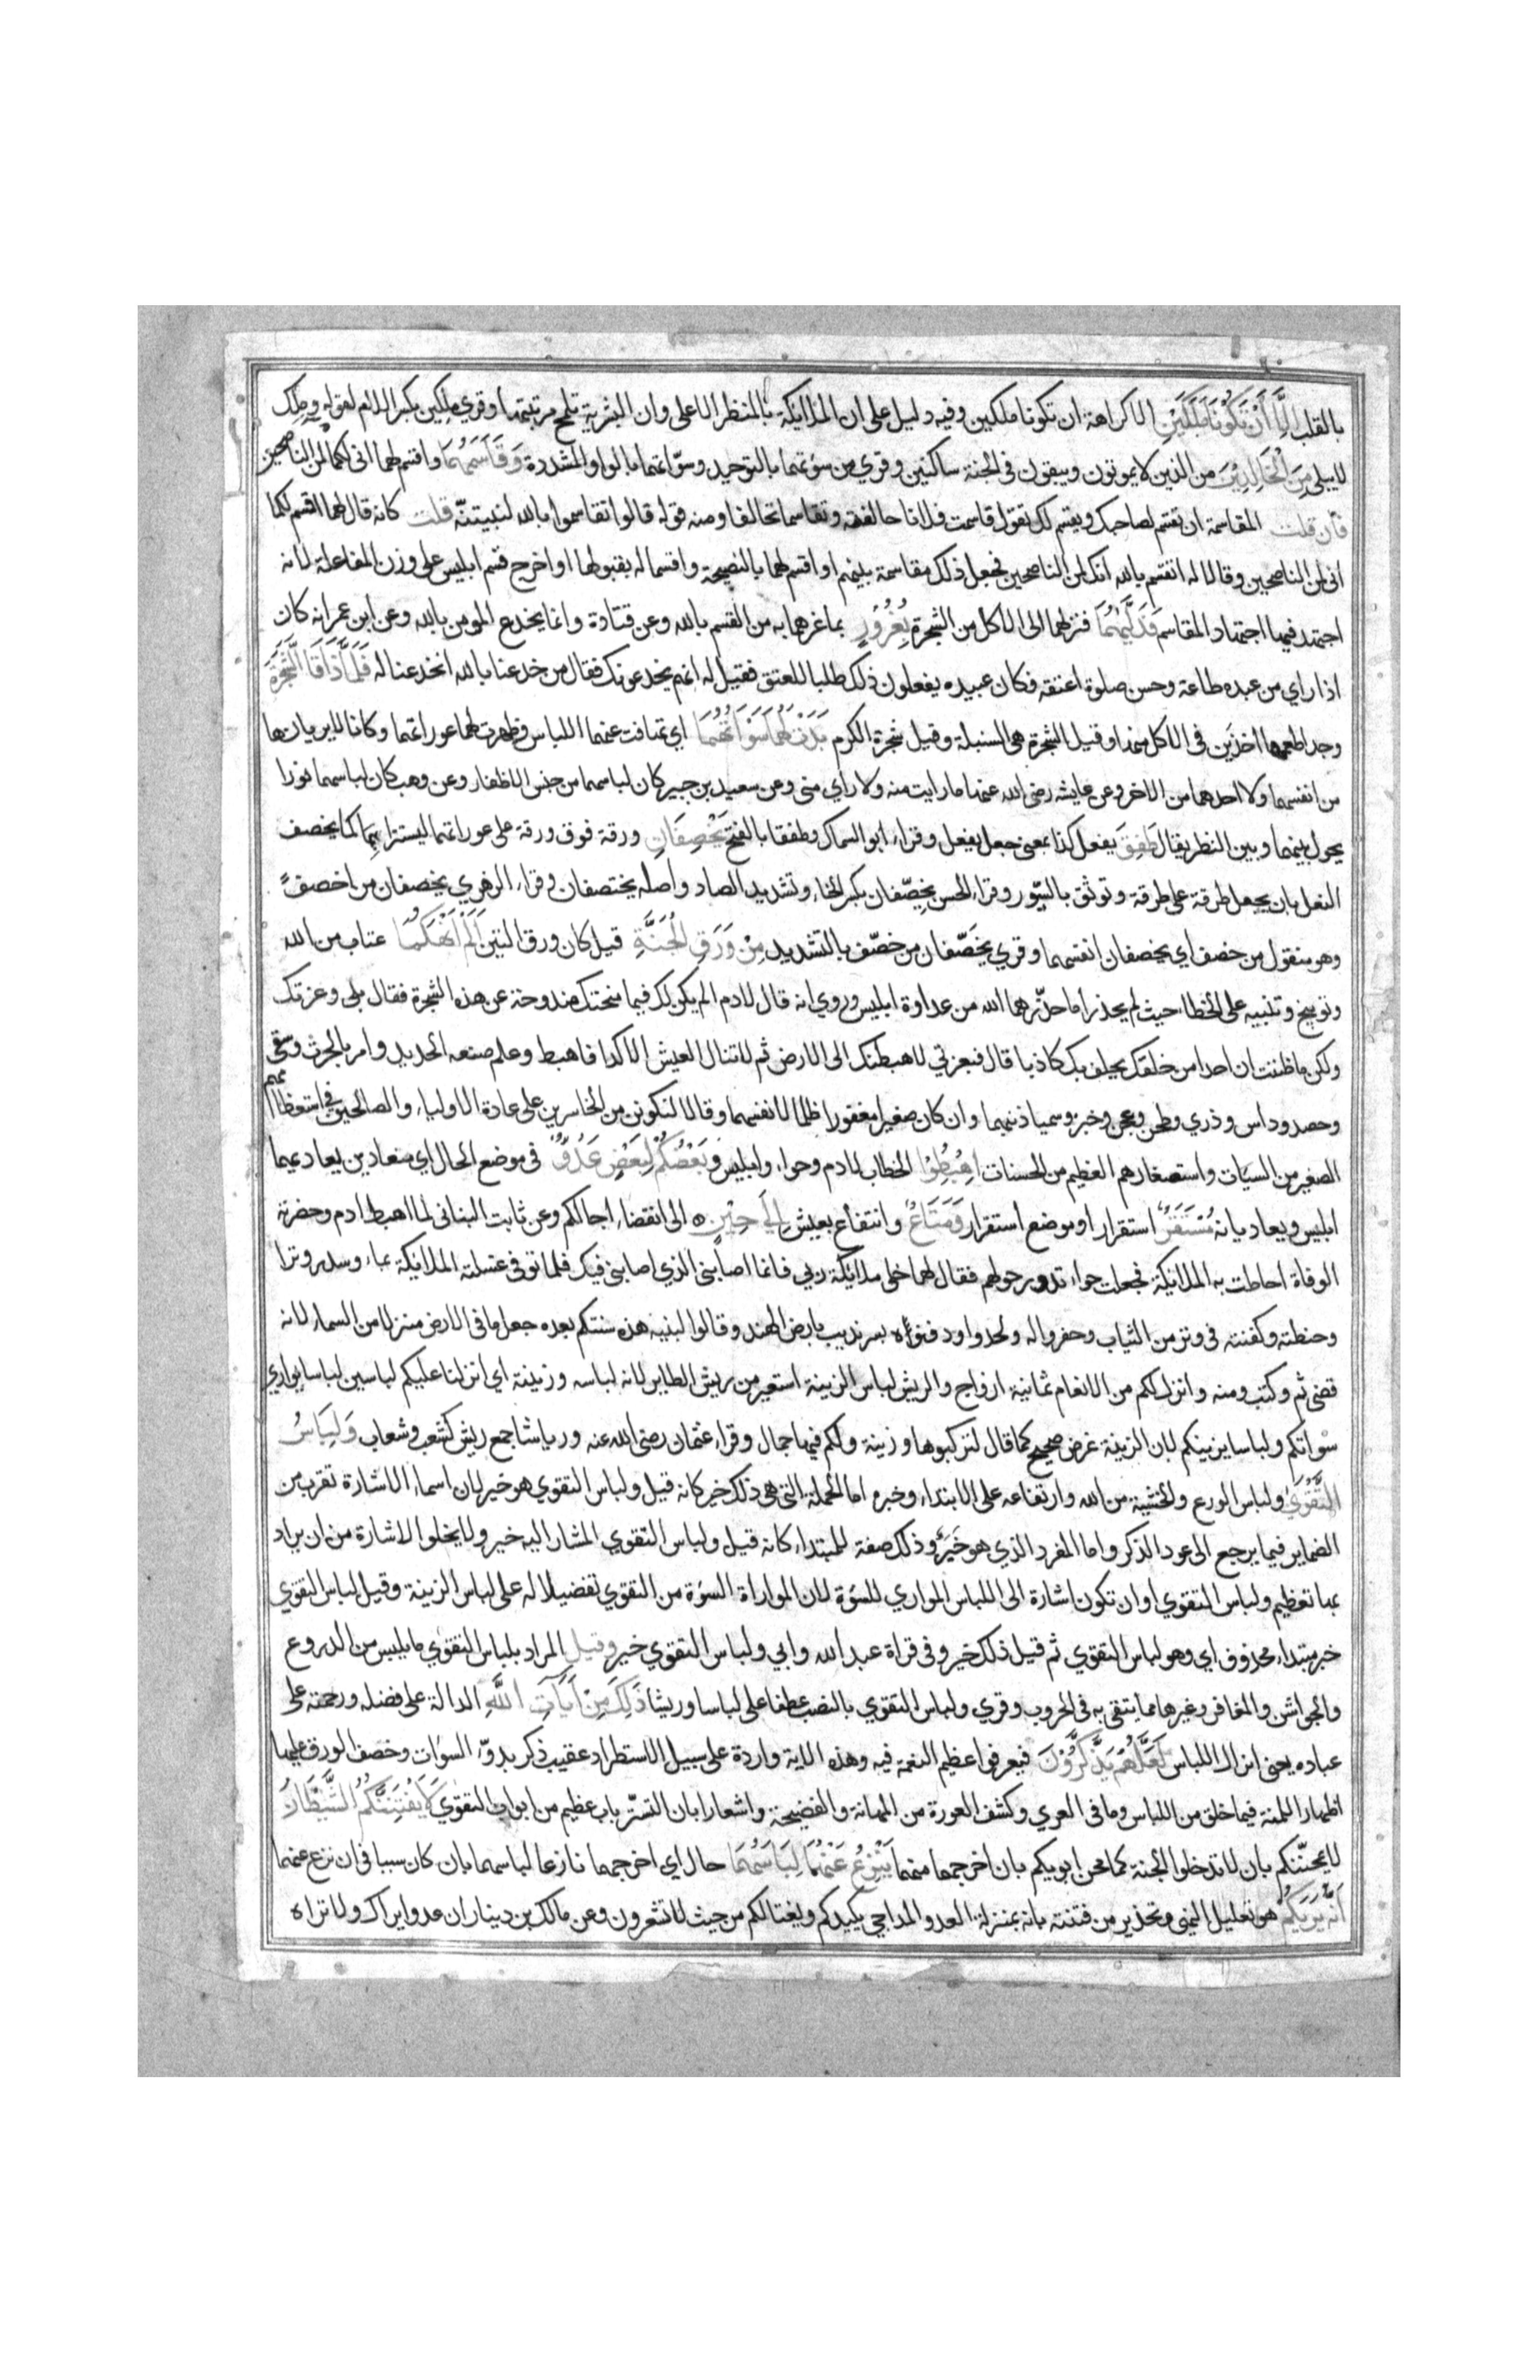 بالقلب إِلَّا أَنْ تَكُونَا مَلَكَيْنِ الا كراهة ان تكونا ملكين وفيه دليل على ان الملائكة بالمنظر الاعلى وان البشرية تلمح مرتبتها وقري ملِكين بكسر اللام لقوله وملك
لا يبلى مِنَ الْخَالِدِيْنَ من الذين لا يموتون ويبقون فى الجنة ساكنين وقري من سوءتهما بالتوحيد وسوّاتهما بالواو المشددة وَقَاسَمَهُمَا واقسم لهما انى لكما لمن الناصحين
فان قلت المقاسمة ان تقسم لصاحبك ويقسم لك تقول قاسمت فلانا حالفته وتقاسما تحالفا ومنه قوله قالوا تقاسموا بالله لنبيتنّه قلت كانه قال لهما اقسم لكما
انى لمن الناصحين وقالا له اتقسم بالله انك لمن الناصحين فجعل ذلك مقاسمة بينهم او اقسم لهما بالنصيحة واقسما له بقبولها او اخرج قسم ابليس على وزن المفاعلة لانه
اجتهد فيها اجتهاد المقاسم فَدَلَّيٰهُمَا فنزلهما الى الاكل من الشجرة بِغُرُورٍ بما غرهما به من القسم بالله وعن قتادة وانما يخدع المومن بالله وعن ابن عمر انه كان
اذا راي من عبده طاعة وحسن صلوة اعتقه فكان عبيده يفعلون ذلك طلبا للعتق فقيل له انهم يخدعونك فقال من خدعنا بالله انخدعنا له فَلَمَّا ذَاقَا الشَّجَرَةَ
وجدا طعمها اخذين فى الاكل منها وقيل الشجرة هى السنبلة وقيل شجرة الكرم بَدَتْ لَهُمَا سَوْاٰتُهُمَا اي تهافت عنهما اللباس وظهرت لهما عوراتهما وكانا لا يريانها
من انفسهما ولا احدهما من الاخر وعن عايشه رضى الله عنها ما رايت منه ولا راي منى وعن سعيد بن جبير كان لباسهما من جنس الاظفار وعن وهب كان لباسهما نورا
يحول بينهما وبين النظر يقال طَفِقَ يفعل كذا بمعنى جعل يفعل وقراء ابو السماك وطفقا بالفتح يَخْصِفَانِ ورقة فوق ورقة على عوراتهما ليستترا بهما كما يخصف
النعل بان يجعل طرقة على طرقة وتوثق بالسيّور وقراء الحسن يخِصّفان بكسر الخاء وتشديد الصاد واصله يختصفان وقراء الزهري يخصفان من اخصف
وهو منقول من خصف اي يخصفان انفسهما وقري يخَصّفان من خصّف بالتشديد مِنْ وَرَقِ الْجَنَّةِ قيل كان ورق التين اَلَمْ اَنْهَكُمَا عتاب من الله
وتوبيخ وتنبيه على الخطاء حيث لم يحذرا ما حذّرهما الله من عداوة ابليس وروي انه قال لادم الم يكن لك فيما منحتك مندوحة عن هذه الشجرة فقال بلى وعزتك
ولكن ما ظننت ان احدا من خلقك يحلف بك كاذبا قال فبعزتي لاهبطنك الى الارض ثم لا تنال العيش الا كدا فاهبط وعلم صنعه الحديد وامر بالحرث وسقى
وحصد وداس وذري وطحن وعجن وخبز وسميا ذنبهما وان كان صغيرا مغفورا ظلما لانفسهما وقالا لنكونن من الخاسرين على عادة الاولياء والصالحين فى استعظامهم
الصغير من السيات واستصغارهم العظيم من الحسنات اهْبِطُوْا الخطاب لادم وحواء وابليس وبَعْضُكُمْ لِبَعْضٍ عَدُوٌّ فى موضع الحال اي متعادين يعاديهما
ابليس ويعاديانه مُسْتَقَرٌّ استقرار او موضع استقرار وَمَتَاعٌ وانتفاع بعيش اِلَى حِيْنٍ ه الى انقضاء اجالكم وعن ثابت البنانى لما اهبط ادم وحضرته
الوفاة احاطت به الملائكة فجعلت حواء تدور حولهم فقال لها خلى ملائكة ربي فانما اصابنى الذي اصابنى فيك فلما توفى غسلته الملائكة بماء وسدر وترا
وحنطته وكفنته فى وتر من الثياب وحفروا له ولحدوا ودفنوه بسرنديب بارض الهند وقالوا لبنيه هذه سنتكم بعده جعل ما فى الارض منزلا من السماء لانه
قضى ثم وكتب ومنه وانزل لكم من الانعام ثمانية ازواج والريش لباس الزينة استعير من ريش الطاير لانه لباسه وزينة اي انزلنا عليكم لباسين لباسا يواري
سواتكم ولباسا يزينكم لان الزينة غرض صحيح كما قال لتركبوها وزينة ولكم فيها جمال وقراء عثمان رضى الله عنه ورياشا جمع ريش كشعب وشعاب وَلِبَاسُ
التَّقْوٰى ولباس الورع والخشية من الله وارتفاعه على الابتداء وخبره اما الجملة التى هى ذلك خير كانه قيل ولباس التقوي هو خير لان اسماء الاشارة تقرب من
الضماير فيما يرجع الى عود الذكر واما المفرد الذي هو خَيْرٌ وذلك صفة للمبتداء كانه قيل ولباس التقوي المشار اليه خير ولا يخلوا الاشارة من ان يراد
بها تعظيم ولباس التقوي او ان تكون اشارة الى اللباس المواري للسوة لان المواراة السوة من التقوي تفضيلا له على لباس الزينة وقيل لباس التقوي
خبر مبتداء محذوف اي وهو لباس التقوي ثم قيل ذلك خير وفى قراة عبد الله وابي ولباس التقوي خير وقيل المراد بلباس التقوي ما يلبس من الدروع
والجواشن والمغافر وغيرها مما يتقى به فى الحروب وقري ولباس التقوي بالنصب عطفا على لباسا وريشا ذٰلِكَ مِنْ اٰيَاتِ اللّٰهِ الدالة على فضله ورحمته على
عباده يعنى انزال اللباس لَعَلَّهُمْ يَذَّكَّرُوْنَ فيعرفوا عظيم النعمة فيه وهذه الاية واردة على سبيل الاستطراد عقيب ذكر بدوّ السوات وخصف الورق عليها
اظهارا للمنة فيما خلق من اللباس وما فى العري وكشف العورة من المهانة والفضيحة واشعارا بان التستّر باب عظيم من ابواب التقوي لَا يَفْتِنَنَّكُمُ الشَّيْطَانُ
لا يمحننّكم بان لا تدخلوا الجنة كما محن ابويكم بان اخرجهما منها يَنْزِعُ عَنْهُمَا لِبَاسَهُمَا حال اي اخرجهما نازعا لباسهما بان كان سببا فى ان نزع عنهما
اَنَّهُ يَرٰىكُمْ هو تعليل للنهى وتحذير من فتنته بانه بمنزلة العدو المداجي يكيدكم ويغتالكم من حيث لا تشعرون وعن مالك بن دينار ان عدوا يراك ولا تراه